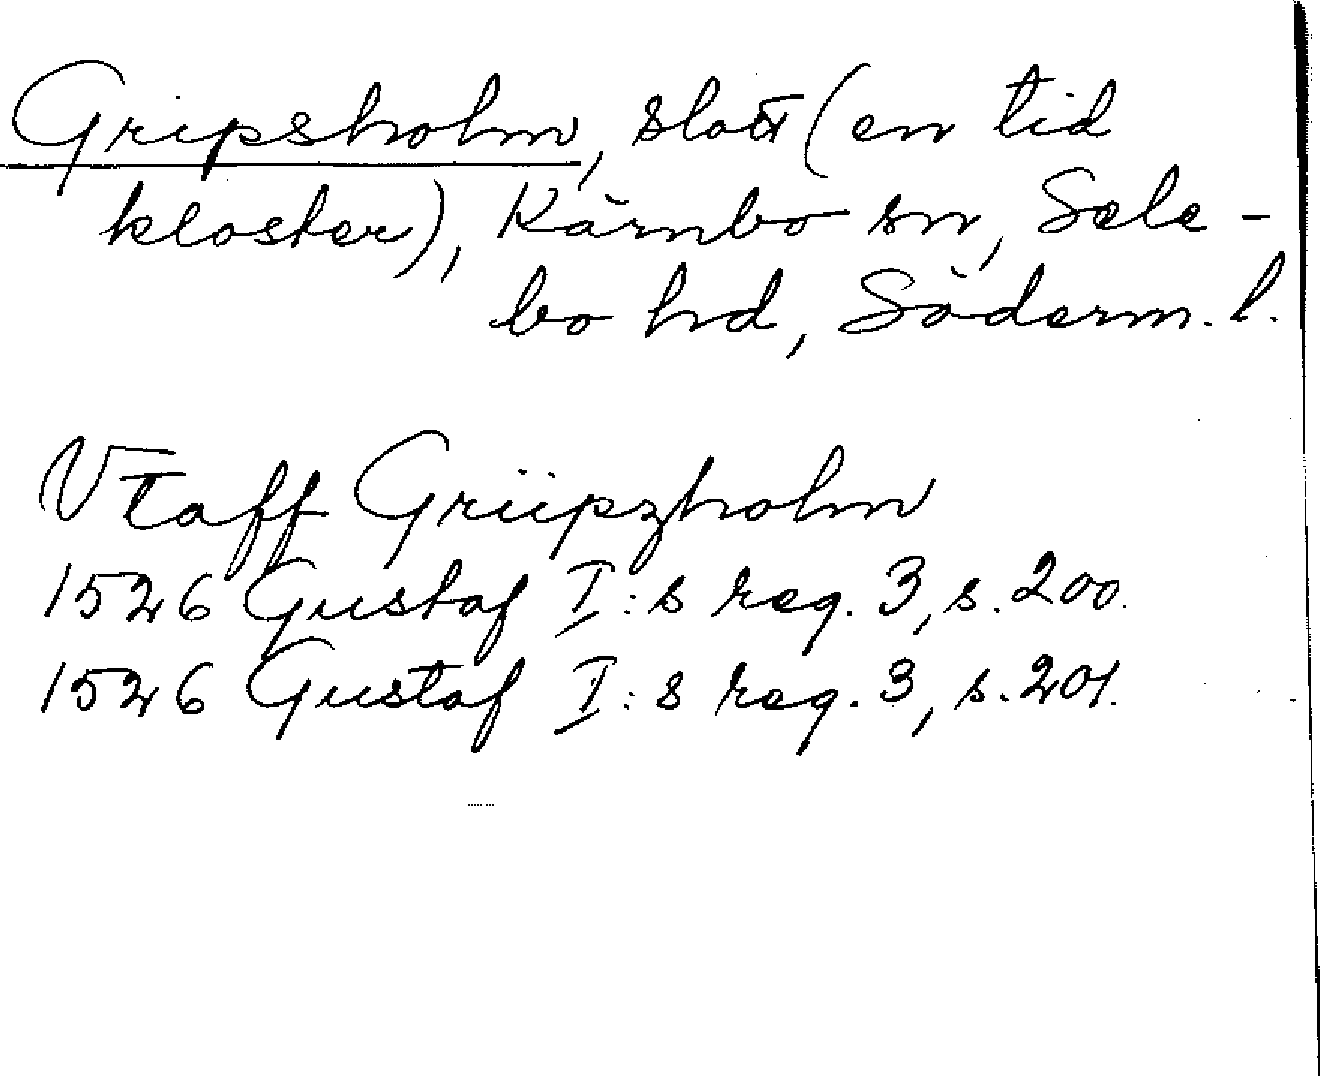 Gripsholm, slott (en tid
kloster), Kärnbo sn, Sele-
bo hd, Söderm. l.
Vtaff Griipzholm
1526 Gustaf I:s reg. 3, s. 200.
1526 Gustaf I:s reg. 3, s. 201.